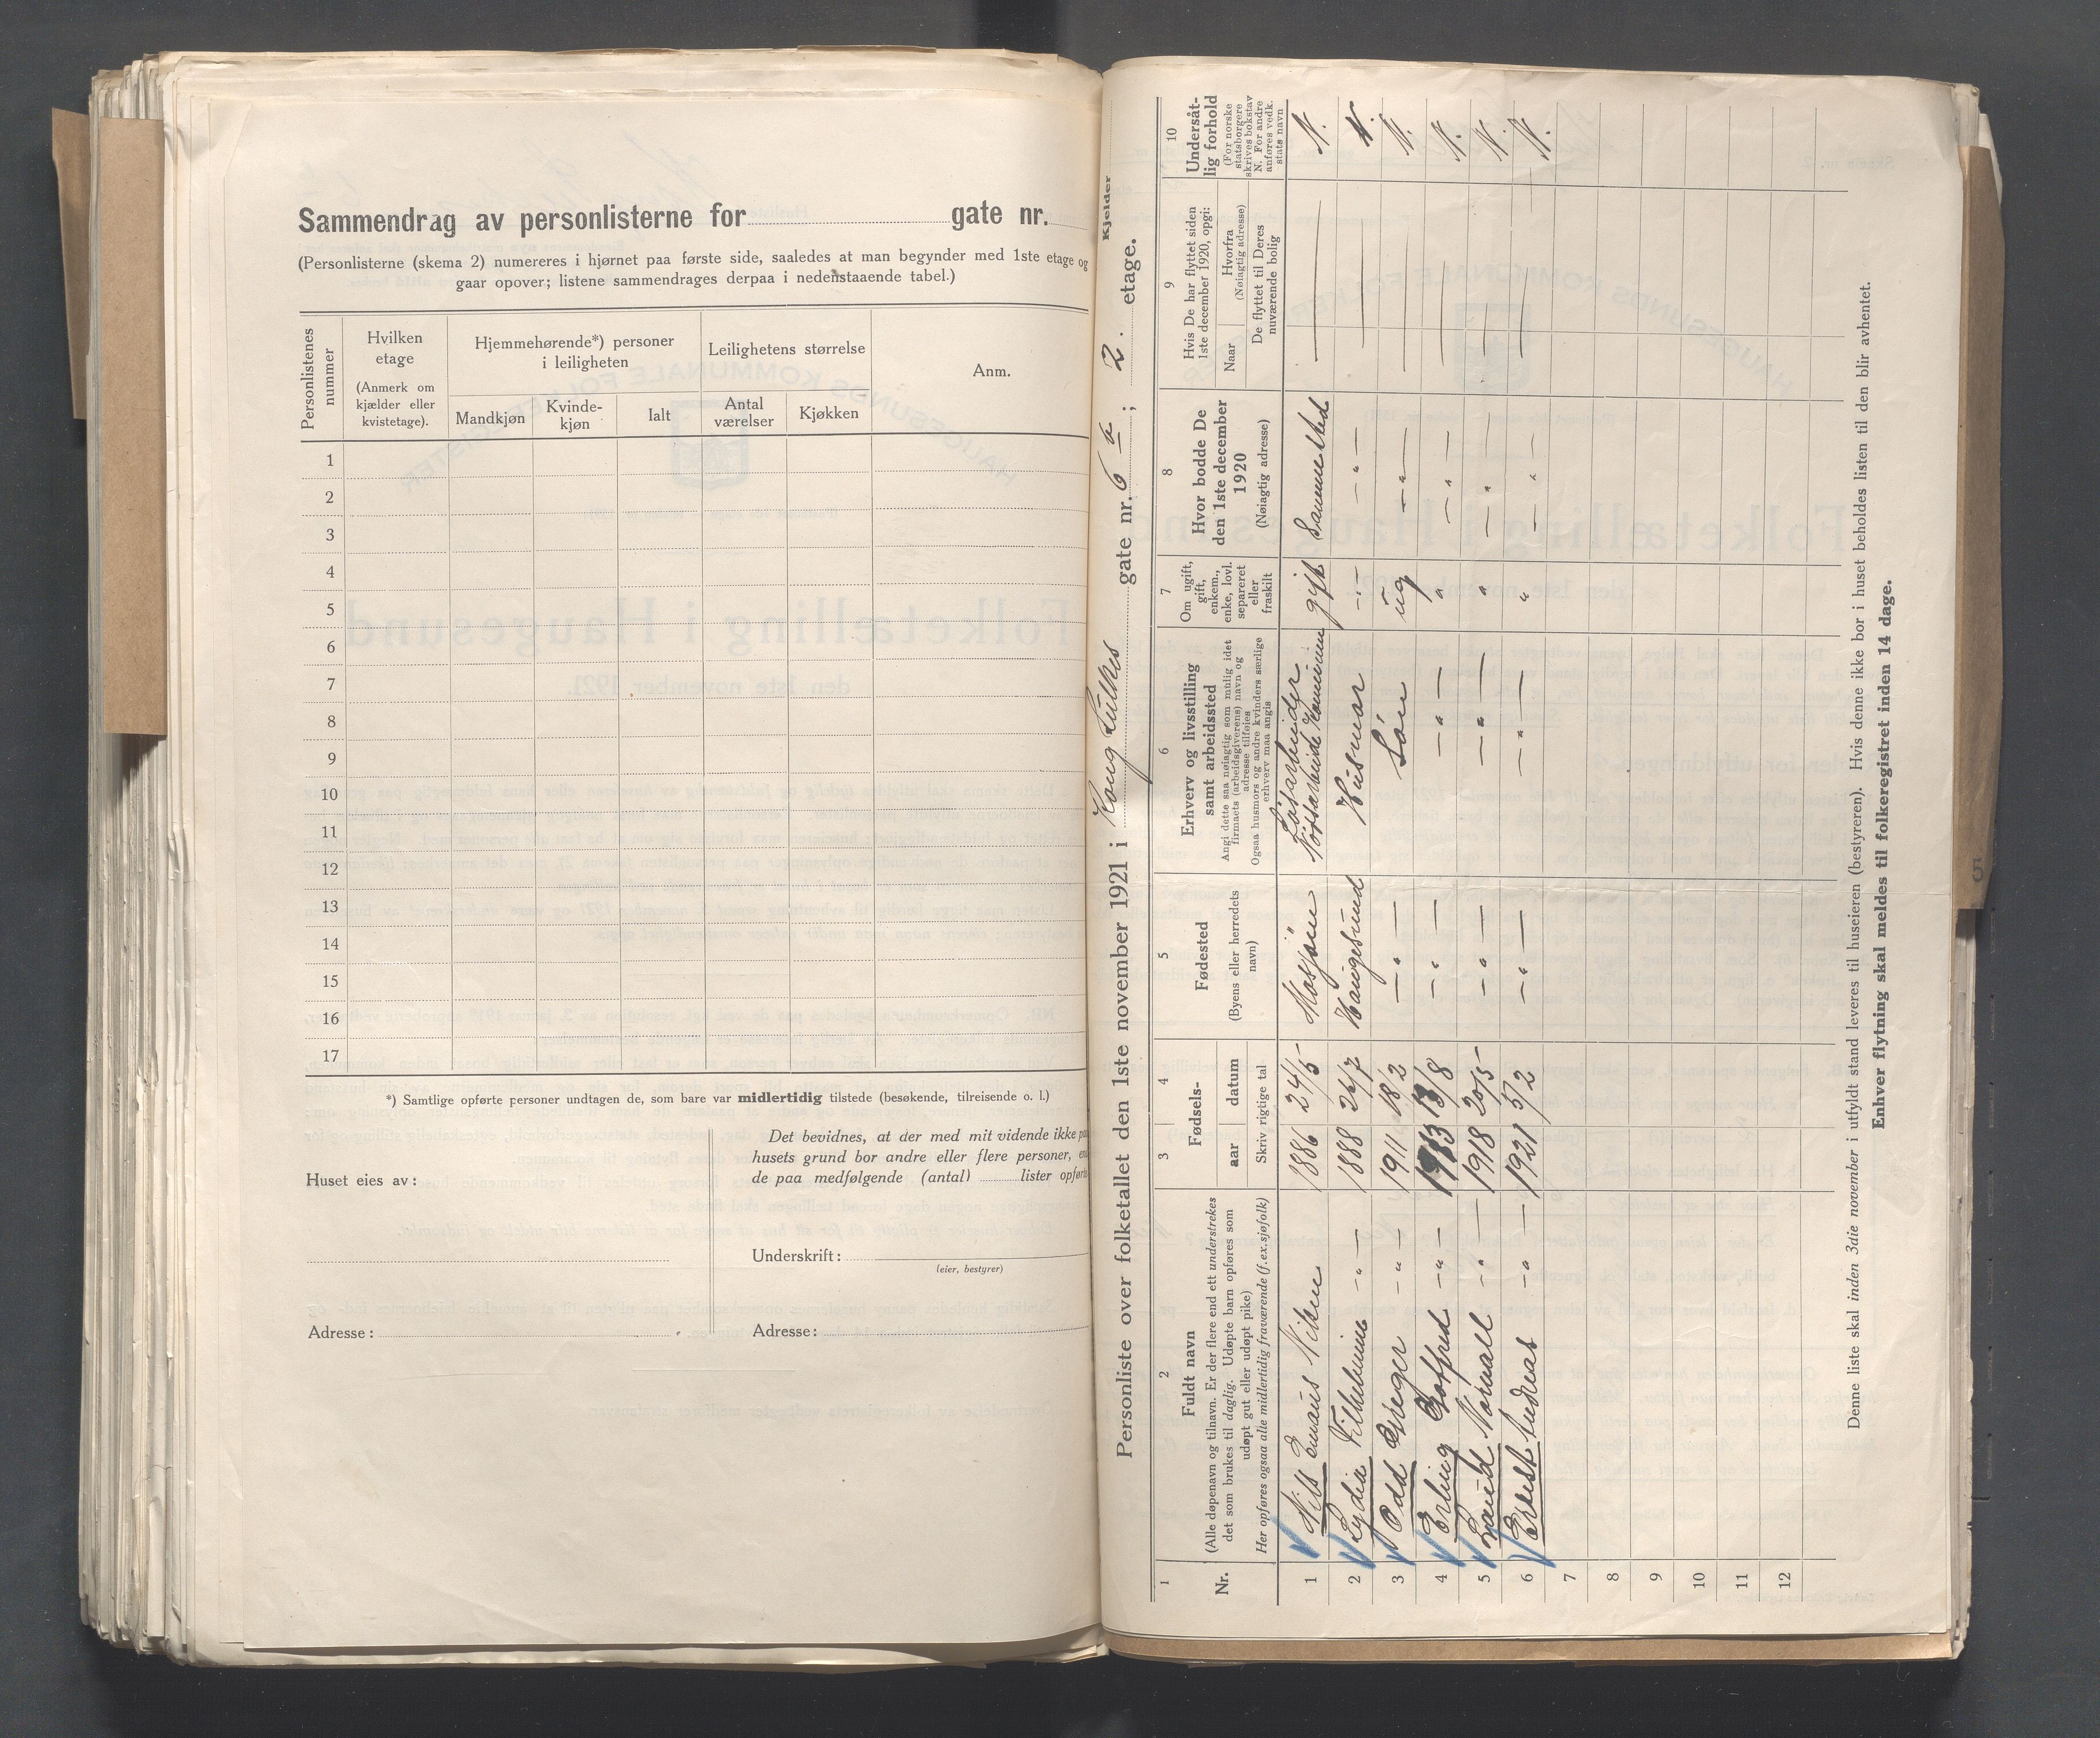 Sammendrag av personlisterne for gate nr.
(Personlisterne (skema 2) numereres i hjørnet paa første side, saaledes at man begynder med 1ste etage og
gaar opover; listene sammendrages derpaa i nedenstaaende tabel.)
Personlistenes nummer
Hvilken etage
(Anmerk om kjælder eller kvistetage).
Hjemmehørende*) personer i leiligheten
Mandkjøn
Kvinde-kjøn
Ialt
Leilighetens størrelse
Antal værelser
Kjøkken
Anm.
1
2
3
4
5
6
7
8
9
10
11
12
13
14
15
16
17
*) Samtlige opførte personer undtagen de, som bare var midlertidig tilstede (besøkende, tilreisende o. l.)
Huset eies av:
Adresse:
Det bevidnes, at der med mit vidende ikke paa
husets grund bor andre eller flere personer,
de paa medfølgende (antal) lister opførte
Underskrift:
(eier, bestyrer)
Adresse:
Kjelder
Personliste over folketallet den 1ste november 1921 i Kong Sukkes gate nr. 6 a; 2. etage.
1
Nr.
2
Fuldt navn
(Alle døpenavn og tilnavn. Er der flere end ett understrekes
det som brukes til daglig. Udøpte barn opføres som
udøpt gut eller udøpt pike)
Her opføres ogsaa alle midlertidig fraværende (f. ex. sjøfolk)
3 4
Fødsels-
aar datum
Skriv rigtige tal
5
Fødested
(Byens eller herredets navn)
6
Erhverv og livsstilling
samt arbeidssted
Angi dette saa nøiagtig som mulig idet
firmaets (arbeidsgiverens) navn og
adresse tilføies
Ogsaa husmors og andre kvinders særlige
erhverv maa angis
7
Om ugift,
gift,
enkem.,
enke, lovl.
separeret
eller
fraskilt
8
Hvor bodde De
den 1ste december
1920
(Nøiagtig adresse)
9
Hvis De har flyttet siden
1ste december 1920, opgi:
Naar
Hvorfra
(Nøiagtig adresse)
De flyttet til Deres
nuværende bolig
10
Undersåt-
lig forhold
(For norske
statsborgere
skrives bokstav
N. For andre
anføres vedk.
stats navn
1 Nils Emaus Nilsen 1886 24/5 Mosjøen Løsarbeider gift Samme sted — N.
2 Lydia Vilhelmine —"— 1888 26/7 Haugesund Husmor —"— —"— — N.
3 Odd —"— 1911 18/2 —"— Søn ug —"— — N.
4 Erling Gotfred —"— 1913 13/8 —"— —"— " —"— — N.
5 Normall —"— 1918 20/5 —"— —"— " —"— — N.
6 Ernst Andreas —"— 1921 5/2 —"— —"— " —"— — N.
7
8
9
10
11
12
Denne liste skal inden 3die november i utfyldt stand leveres til huseieren (bestyreren). Hvis denne ikke bor i huset beholdes listen til den blir avhentet.
Enhver flytning skal meldes til folkeregistret inden 14 dage.